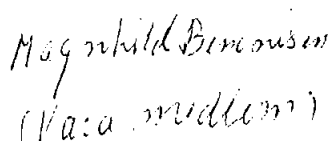 Magnhild Benonisen
(Vara medlem)